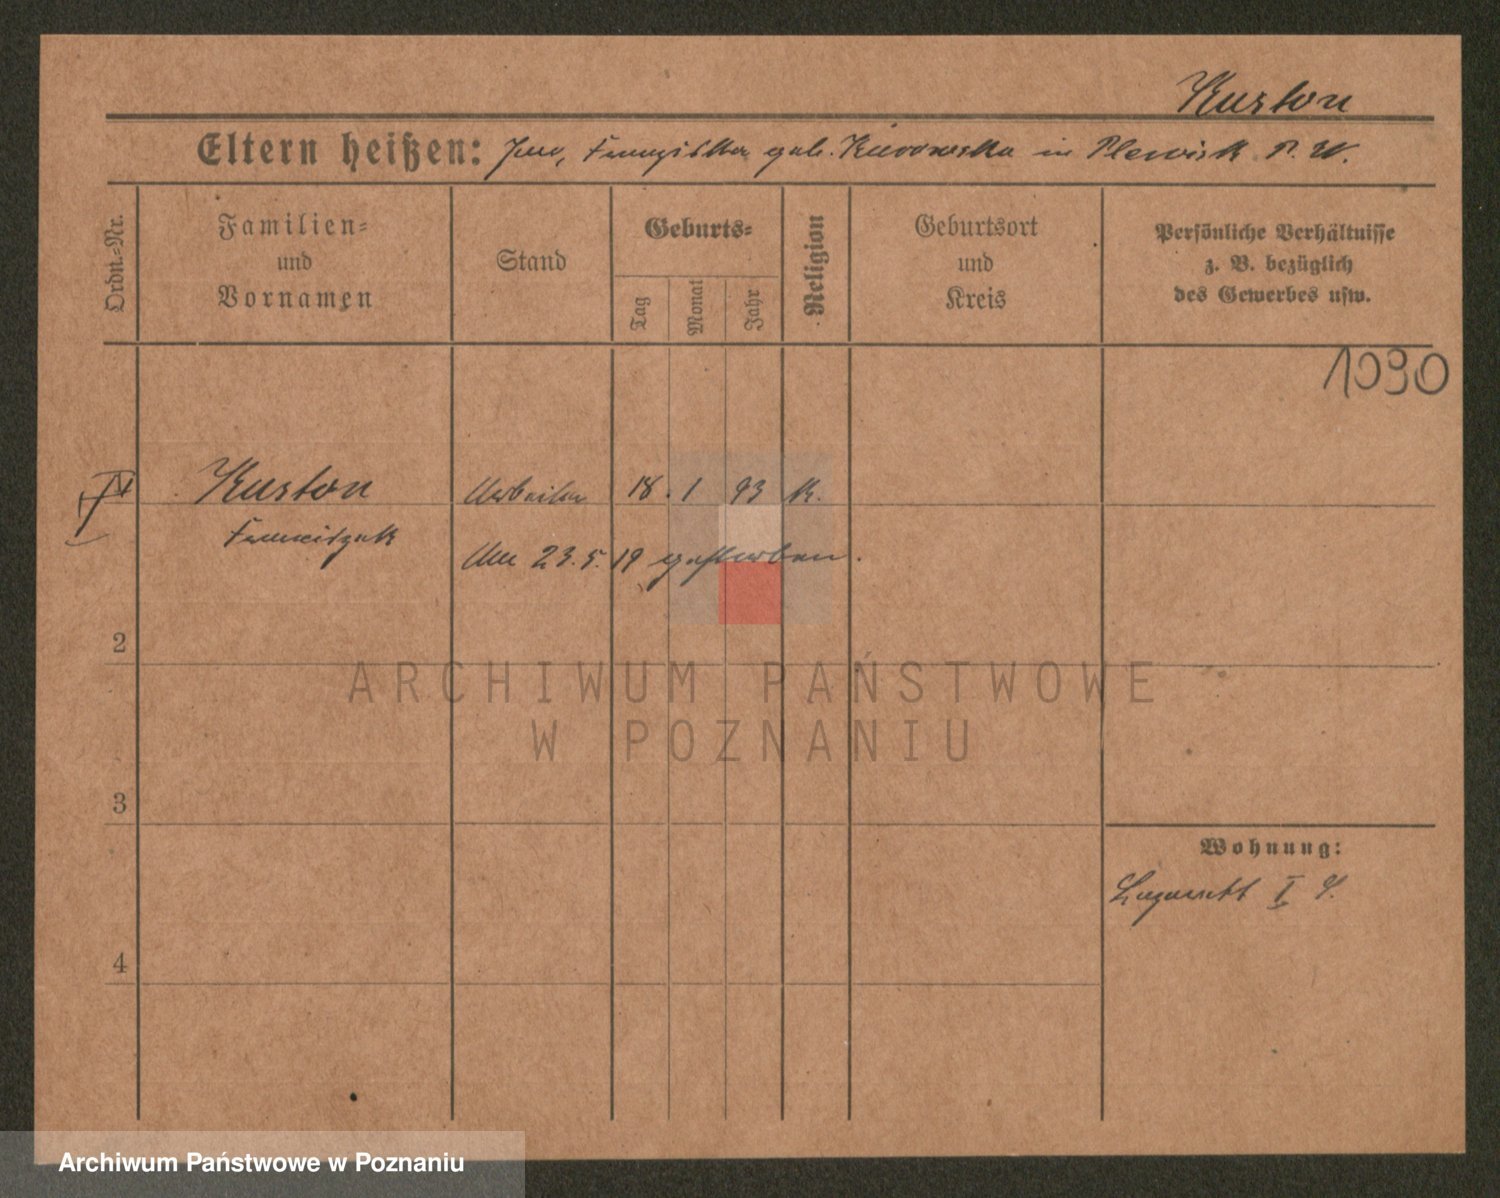 Kurton
Eltern heißen: Jan, Franziska geb. Kurowska in Plewisk P. W.
Ordn.=Nr.
Familien=
und
Vornamen
Stand
Geburts=
Tag
Monat
Jahr
Religion
Geburtsort
und
Kreis
Persönliche Verhältnisse
z. B. bezüglich
des Gewerbes usw.
1090
Kurton Arbeiter 18. 1 93 K.
Franciszek
Am 23. 5. 19 gestorben.
2
ARCHIWUM PAŃSTWOWE
W POZNANIU
3
Wohnung:
Lazarett I
4
Archiwum Państwowe w Poznaniu